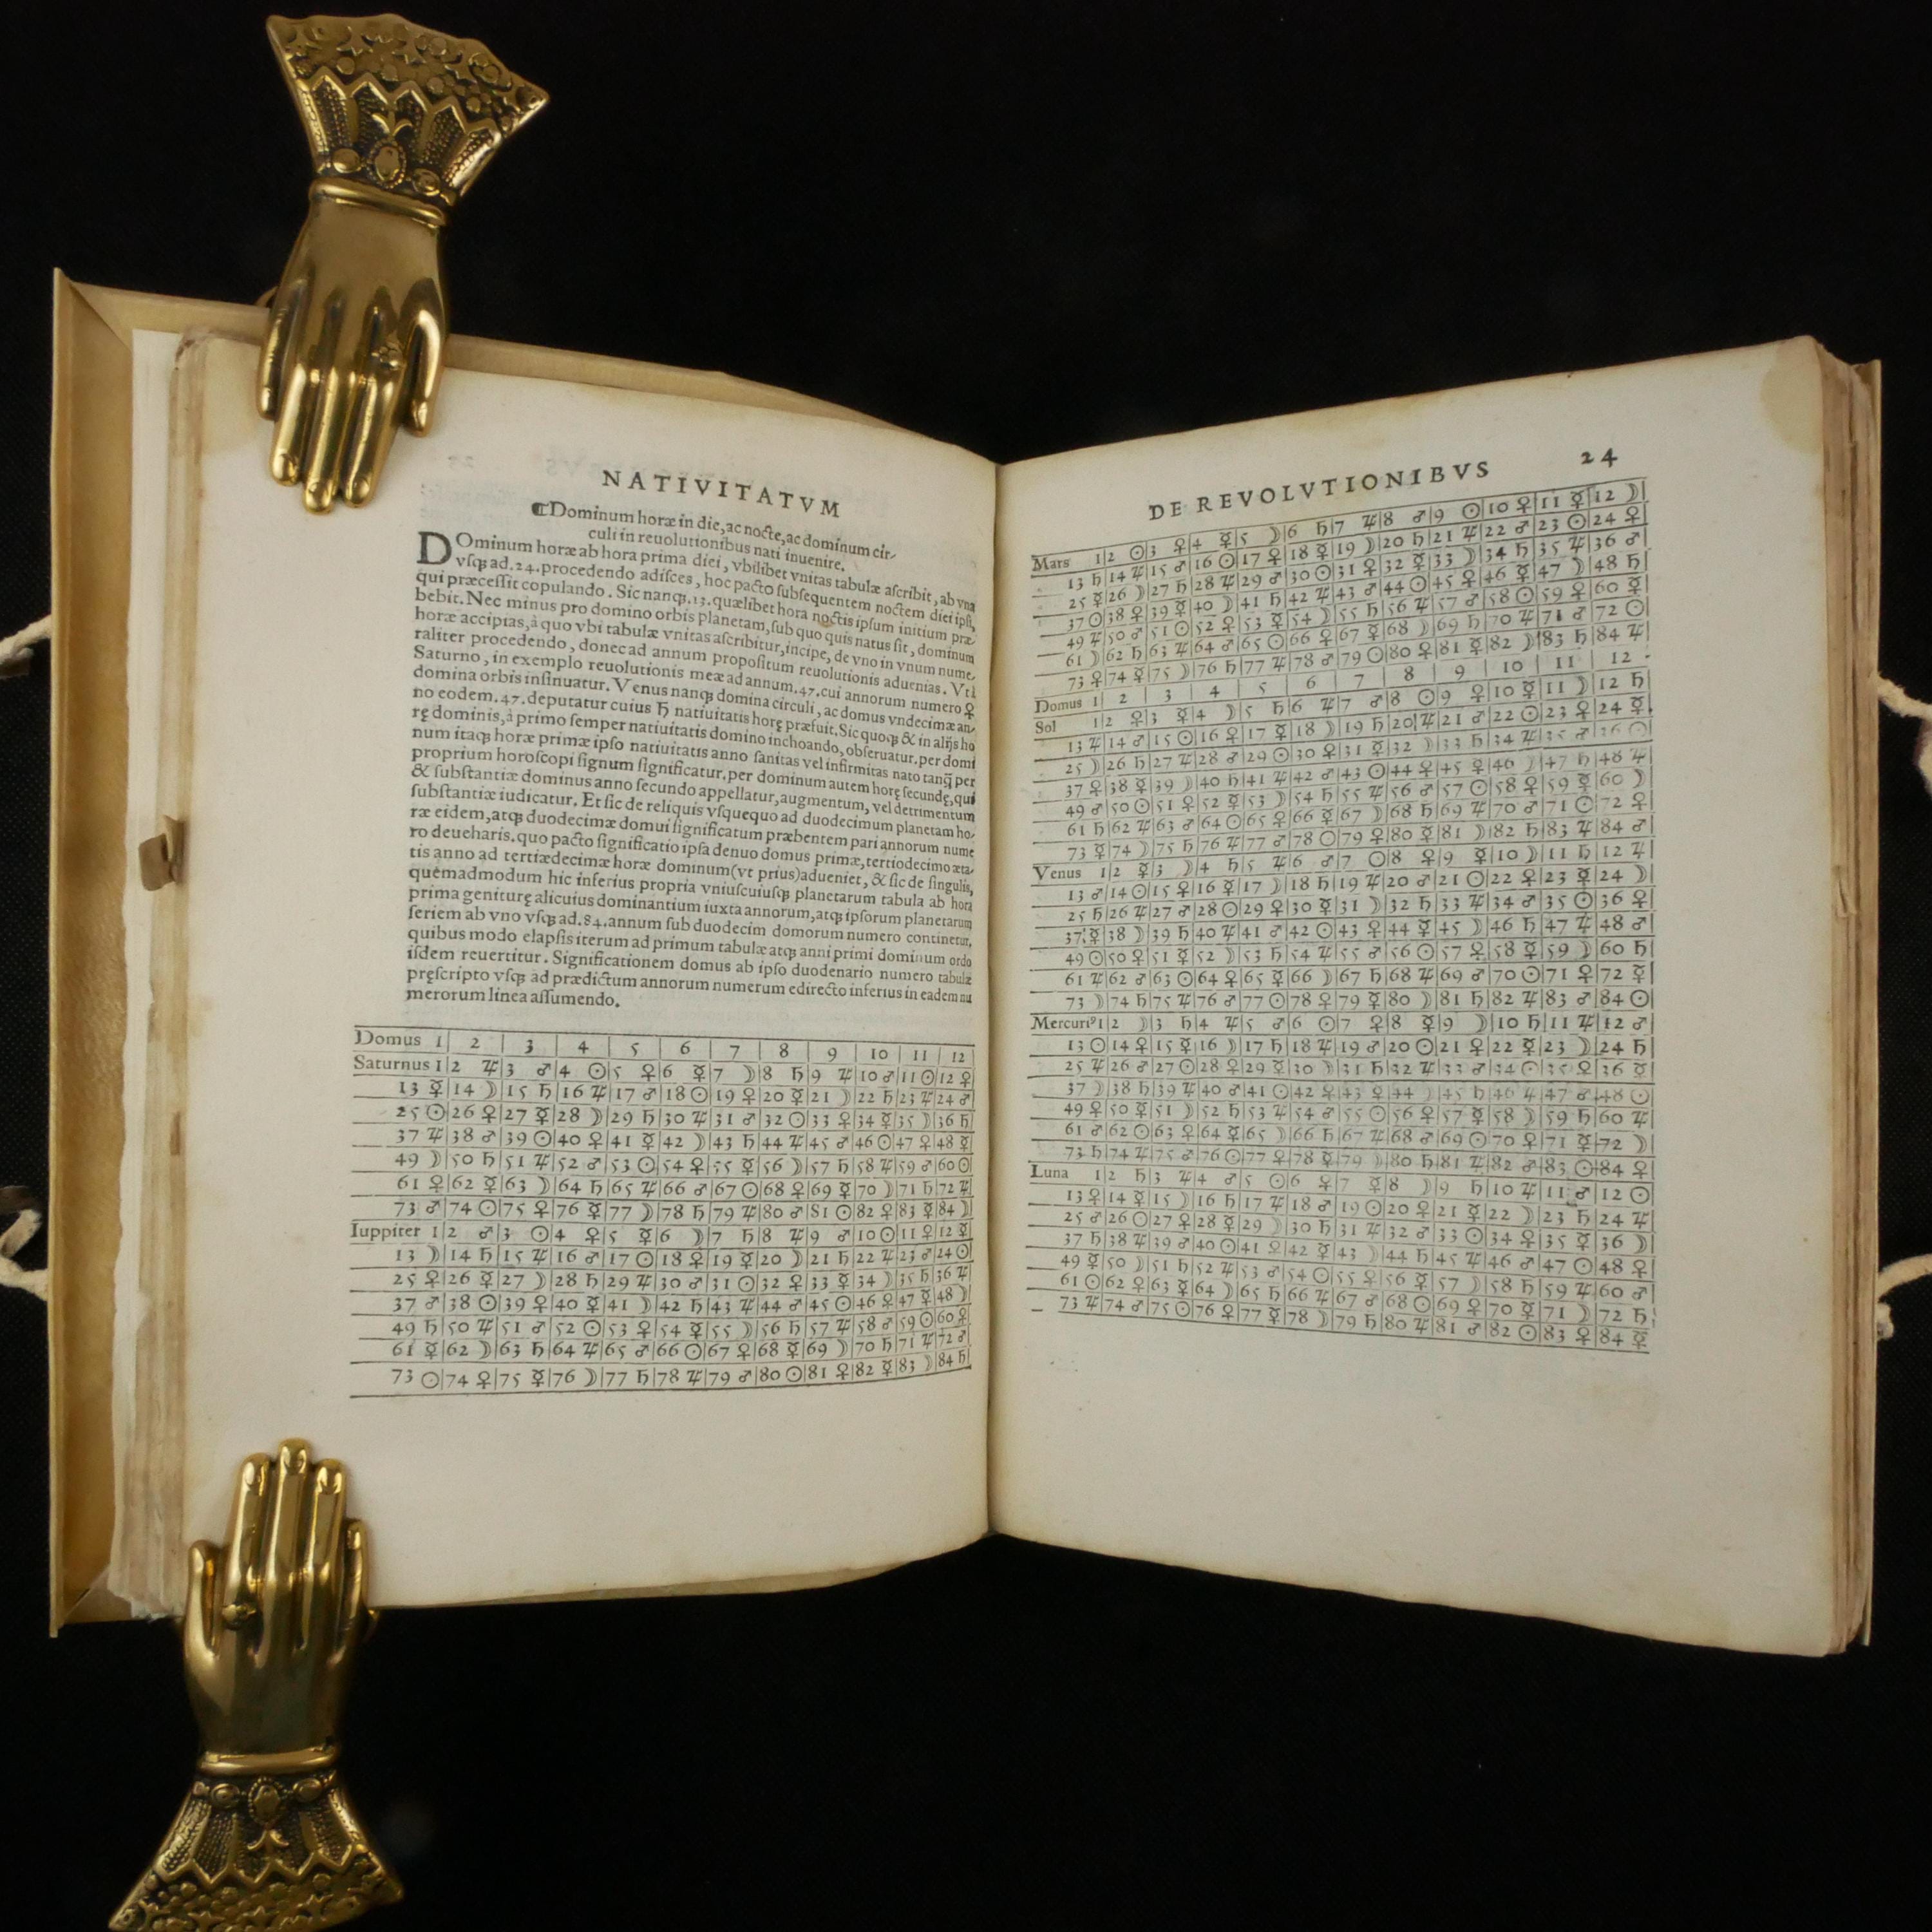 NATIVITATVM
¶Dominum horæ in die, ac nocte, ac dominum cir-
culi in reuolutionibus nati inuenire.
DOminum horæ ab hora prima diei, vbilibet vnitas tabulæ ascribit, ab vna
vsq; ad .24. procedendo adisces, hoc pacto subsequentem noctem diei ipsi,
qui præcessit copulando. Sic nanq; .13. quælibet hora noctis ipsum initium præ-
bebit. Nec minus pro domino orbis planetam, sub quo quis natus sit, dominum
horæ accipias, à quo vbi tabulæ vnitas ascribitur, incipe, de vno in vnum nume-
raliter procedendo, donec ad annum propositum reuolutionis aduenias. Vti
Saturno, in exemplo reuolutionis meæ ad annum .47. cui annorum numero ♀
domina orbis insinuatur. Venus nanq; domina circuli, ac domus vndecimæ an-
no eodem .47. deputatur cuius ♄ natiuitatis horę præfuit. Sic quoq; & in alijs ho
rę dominis, à primo semper natiuitatis domino inchoando, obseruatur. per domi
num itaq; horæ primæ ipso natiuitatis anno sanitas vel infirmitas nato tanq̃ per
proprium horoscopi signum significatur. per dominum autem horę secundę, qui
& substantiæ dominus anno secundo appellatur, augmentum, vel detrimentum
substantiæ iudicatur. Et sic de reliquis vsquequo ad duodecimum planetam ho-
ræ eidem, atq; duodecimæ domui significatum præbentem pari annorum nume
ro deueharis. quo pacto significatio ipsa denuo domus primæ, tertiodecimo æta-
tis anno ad tertiædecimæ horæ dominum (vt prius) adueniet, & sic de singulis,
quemadmodum hic inferius propria vniuscuiusq; planetarum tabula ab hora
prima geniturę alicuius dominantium iuxta annorum, atq; ipsorum planetarum
seriem ab vno vsq; ad .84. annum sub duodecim domorum numero continetur,
quibus modo elapsis iterum ad primum tabulæ atq; anni primi dominum ordo
iisdem reuertitur. Significationem domus ab ipso duodenario numero tabulæ
pręscripto vsq; ad prædictum annorum numerum edirecto inferius in eadem nu
merorum linea assumendo.
Domus 1| 2 | 3 | 4 | 5 | 6 | 7 | 8 | 9 | 10 | 11 | 12
Saturnus 1|2 ♃|3 ♂|4 ☉|5 ♀|6 ☿|7 ☽|8 ♄|9 ♃|10 ♂|11 ☉|12 ♀
13 ☿|14 ☽|15 ♄|16 ♃|17 ♂|18 ☉|19 ♀|20 ☿|21 ☽|22 ♄|23 ♃|24 ♂
25 ☉|26 ♀|27 ☿|28 ☽|29 ♄|30 ♃|31 ♂|32 ☉|33 ♀|34 ☿|35 ☽|36 ♄
37 ♃|38 ♂|39 ☉|40 ♀|41 ☿|42 ☽|43 ♄|44 ♃|45 ♂|46 ☉|47 ♀|48 ☿
49 ☽|50 ♄|51 ♃|52 ♂|53 ☉|54 ♀|55 ☿|56 ☽|57 ♄|58 ♃|59 ♂|60 ☉
61 ♀|62 ☿|63 ☽|64 ♄|65 ♃|66 ♂|67 ☉|68 ♀|69 ☿|70 ☽|71 ♄|72 ♃
73 ♂|74 ☉|75 ♀|76 ☿|77 ☽|78 ♄|79 ♃|80 ♂|81 ☉|82 ♀|83 ☿|84 ☽
Iuppiter 1|2 ♂|3 ☉|4 ♀|5 ☿|6 ☽|7 ♄|8 ♃|9 ♂|10 ☉|11 ♀|12 ☿
13 ☽|14 ♄|15 ♃|16 ♂|17 ☉|18 ♀|19 ☿|20 ☽|21 ♄|22 ♃|23 ♂|24 ☉
25 ♀|26 ☿|27 ☽|28 ♄|29 ♃|30 ♂|31 ☉|32 ♀|33 ☿|34 ☽|35 ♄|36 ♃
37 ♂|38 ☉|39 ♀|40 ☿|41 ☽|42 ♄|43 ♃|44 ♂|45 ☉|46 ♀|47 ☿|48 ☽
49 ♄|50 ♃|51 ♂|52 ☉|53 ♀|54 ☿|55 ☽|56 ♄|57 ♃|58 ♂|59 ☉|60 ♀
61 ☿|62 ☽|63 ♄|64 ♃|65 ♂|66 ☉|67 ♀|68 ☿|69 ☽|70 ♄|71 ♃|72 ♂
73 ☉|74 ♀|75 ☿|76 ☽|77 ♄|78 ♃|79 ♂|80 ☉|81 ♀|82 ☿|83 ☽|84 ♄
DE REVOLVTIONIBVS 24
Mars 1|2 ☉|3 ♀|4 ☿|5 ☽|6 ♄|7 ♃|8 ♂|9 ☉|10 ♀|11 ☿|12 ☽
13 ♄|14 ♃|15 ♂|16 ☉|17 ♀|18 ☿|19 ☽|20 ♄|21 ♃|22 ♂|23 ☉|24 ♀
25 ☿|26 ☽|27 ♄|28 ♃|29 ♂|30 ☉|31 ♀|32 ☿|33 ☽|34 ♄|35 ♃|36 ♂
37 ☉|38 ♀|39 ☿|40 ☽|41 ♄|42 ♃|43 ♂|44 ☉|45 ♀|46 ☿|47 ☽|48 ♄
49 ♃|50 ♂|51 ☉|52 ♀|53 ☿|54 ☽|55 ♄|56 ♃|57 ♂|58 ☉|59 ♀|60 ☿
61 ☽|62 ♄|63 ♃|64 ♂|65 ☉|66 ♀|67 ☿|68 ☽|69 ♄|70 ♃|71 ♂|72 ☉
73 ♀|74 ☿|75 ☽|76 ♄|77 ♃|78 ♂|79 ☉|80 ♀|81 ☿|82 ☽|83 ♄|84 ♃
Domus 1| 2 | 3 | 4 | 5 | 6 | 7 | 8 | 9 | 10 | 11 | 12
Sol 1|2 ♀|3 ☿|4 ☽|5 ♄|6 ♃|7 ♂|8 ☉|9 ♀|10 ☿|11 ☽|12 ♄
13 ♃|14 ♂|15 ☉|16 ♀|17 ☿|18 ☽|19 ♄|20 ♃|21 ♂|22 ☉|23 ♀|24 ☿
25 ☽|26 ♄|27 ♃|28 ♂|29 ☉|30 ♀|31 ☿|32 ☽|33 ♄|34 ♃|35 ♂|36 ☉
37 ♀|38 ☿|39 ☽|40 ♄|41 ♃|42 ♂|43 ☉|44 ♀|45 ♀|46 ☽|47 ♄|48 ♃
49 ♂|50 ☉|51 ♀|52 ☿|53 ☽|54 ♄|55 ♃|56 ♂|57 ☉|58 ♀|59 ☿|60 ☽
61 ♄|62 ♃|63 ♂|64 ☉|65 ♀|66 ☿|67 ☽|68 ♄|69 ♃|70 ♂|71 ☉|72 ♀
73 ☿|74 ☽|75 ♄|76 ♃|77 ♂|78 ☉|79 ♀|80 ☿|81 ☽|82 ♄|83 ♃|84 ♂
Venus 1|2 ☿|3 ☽|4 ♄|5 ♃|6 ♂|7 ☉|8 ♀|9 ☿|10 ☽|11 ♄|12 ♃
13 ♂|14 ☉|15 ♀|16 ☿|17 ☽|18 ♄|19 ♃|20 ♂|21 ☉|22 ♀|23 ☿|24 ☽
25 ♄|26 ♃|27 ♂|28 ☉|29 ♀|30 ☿|31 ☽|32 ♄|33 ♃|34 ♂|35 ☉|36 ♀
37 ☿|38 ☽|39 ♄|40 ♃|41 ♂|42 ☉|43 ♀|44 ☿|45 ☽|46 ♄|47 ♃|48 ♂
49 ☉|50 ♀|51 ☿|52 ☽|53 ♄|54 ♃|55 ♂|56 ☉|57 ♀|58 ☿|59 ☽|60 ♄
61 ♃|62 ♂|63 ☉|64 ♀|65 ☿|66 ☽|67 ♄|68 ♃|69 ♂|70 ☉|71 ♀|72 ☿
73 ☽|74 ♄|75 ♃|76 ♂|77 ☉|78 ♀|79 ☿|80 ☽|81 ♄|82 ♃|83 ♂|84 ☉
Mercuriꝰ 1|2 ☽|3 ♄|4 ♃|5 ♂|6 ☉|7 ♀|8 ☿|9 ☽|10 ♄|11 ♃|12 ♂
13 ☉|14 ♀|15 ☿|16 ☽|17 ♄|18 ♃|19 ♂|20 ☉|21 ♀|22 ☿|23 ☽|24 ♄
25 ♃|26 ♂|27 ☉|28 ♀|29 ☿|30 ☽|31 ♄|32 ♃|33 ♂|34 ☉|35 ♀|36 ☿
37 ☽|38 ♄|39 ♃|40 ♂|41 ☉|42 ♀|43 ☿|44 ☽|45 ♄|46 ♃|47 ♂|48 ☉
49 ♀|50 ☿|51 ☽|52 ♄|53 ♃|54 ♂|55 ☉|56 ♀|57 ☿|58 ☽|59 ♄|60 ♃
61 ♂|62 ☉|63 ♀|64 ☿|65 ☽|66 ♄|67 ♃|68 ♂|69 ☉|70 ♀|71 ☿|72 ☽
73 ♄|74 ♃|75 ♂|76 ☉|77 ♀|78 ☿|79 ☽|80 ♄|81 ♃|82 ♂|83 ☉|84 ♀
Luna 1|2 ♄|3 ♃|4 ♂|5 ☉|6 ♀|7 ☿|8 ☽|9 ♄|10 ♃|11 ♂|12 ☉
13 ♀|14 ☿|15 ☽|16 ♄|17 ♃|18 ♂|19 ☉|20 ♀|21 ☿|22 ☽|23 ♄|24 ♃
25 ♂|26 ☉|27 ♀|28 ☿|29 ☽|30 ♄|31 ♃|32 ♂|33 ☉|34 ♀|35 ☿|36 ☽
37 ♄|38 ♃|39 ♂|40 ☉|41 ♀|42 ☿|43 ☽|44 ♄|45 ♃|46 ♂|47 ☉|48 ♀
49 ☿|50 ☽|51 ♄|52 ♃|53 ♂|54 ☉|55 ♀|56 ☿|57 ☽|58 ♄|59 ♃|60 ♂
61 ☉|62 ♀|63 ☿|64 ☽|65 ♄|66 ♃|67 ♂|68 ☉|69 ♀|70 ☿|71 ☽|72 ♄
73 ♃|74 ♂|75 ☉|76 ♀|77 ☿|78 ☽|79 ♄|80 ♃|81 ♂|82 ☉|83 ♀|84 ☿